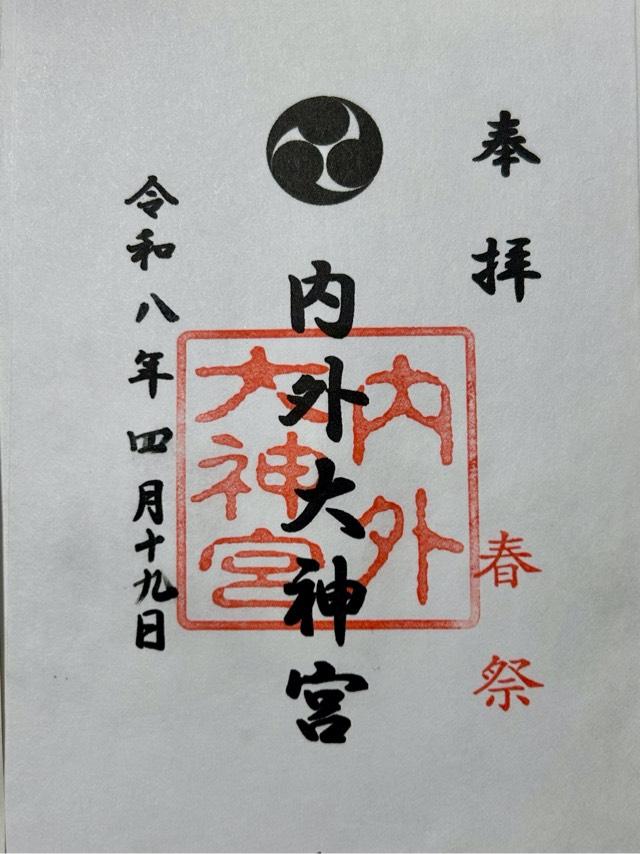 奉拝
春祭
内外大神宮
内外
大神宮
令和八年四月十九日